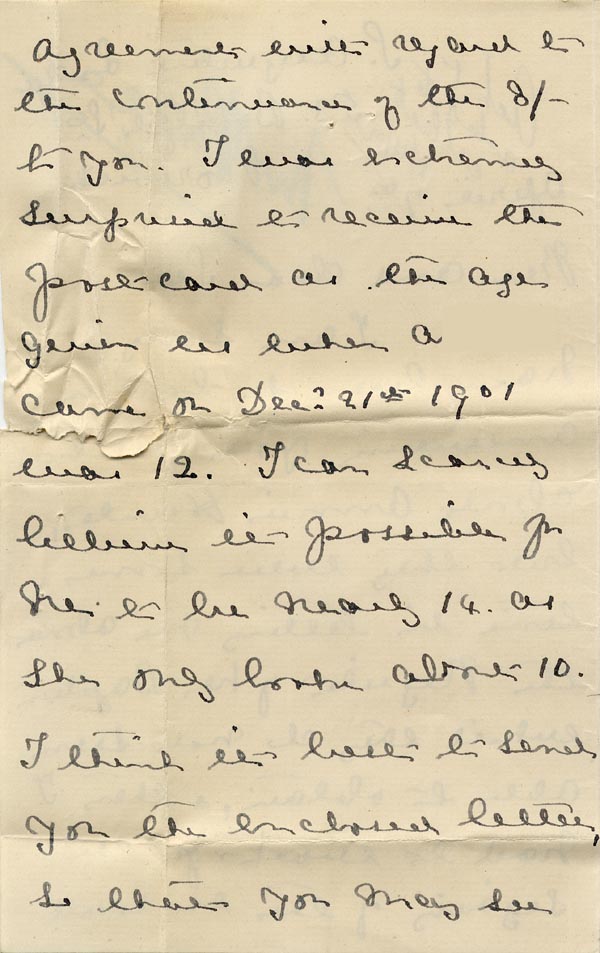 agreement with regard to
the continuance of the 3/-
to you. I was extremely
surprised to receive the
post-card as the age
given us when A
came on Dec. 21st 1901
was 12. I can scarcely
believe it possible for
her to be nearly 14. as
she only looks about 10.
I think it best to send
you the enclosed letter,
so that you may see